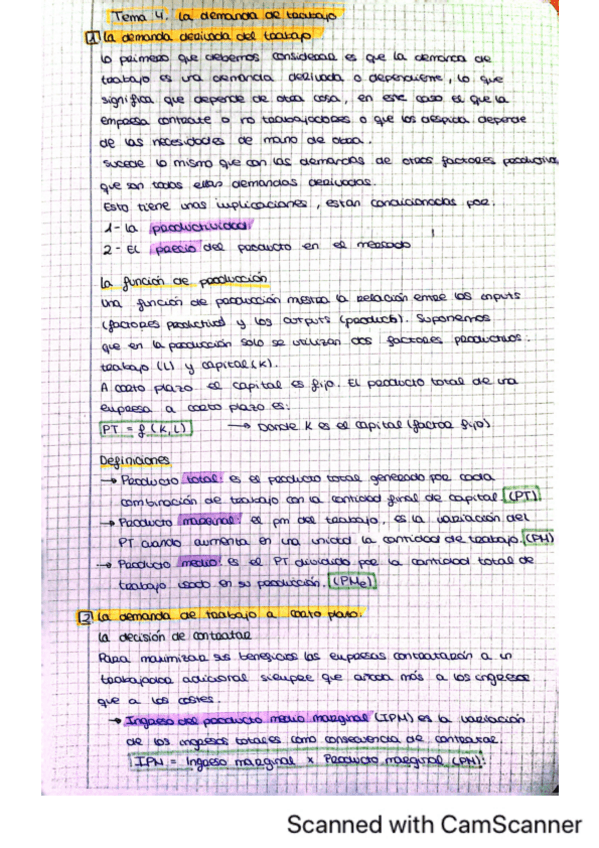 Tema 4. La demanda de trabajo
1 La demanda derivada del trabajo
Lo primero que debemos considerar es que la demanda de
trabajo es una demanda derivada o dependiente, lo que
significa que depende de otra cosa, en este caso es que la
empresa contrate o no trabajadores o que los despida depende
de las necesidades de mano de obra.
Sucede lo mismo que con las demandas de otros factores productivos
que son todos ellas demandas derivadas.
Esto tiene unas implicaciones, están condicionadas por:
1- La productividad
2- El precio del producto en el mercado
La función de producción
Una función de producción mestra la relación entre los inputs
(factores productivos) y los outputs (producto). Suponemos
que en la producción solo se utilizan dos factores productivos.
trabajo (L) y capital (K).
A corto plazo el capital es fijo. El producto total de una
empresa a corto plazo es:
PT = f (K, L) → Donde K es el capital (factor fijo)
Definiciones
→ Producto total: es el producto total generado por cada
combinación de trabajo con la cantidad final de capital. (PT)
→ Producto marginal: el pm del trabajo, es la variación del
PT cuando aumenta en una unidad la cantidad de trabajo. (PM)
→ Producto medio: es el PT dividido por la cantidad total de
trabajo usado en su producción. (PMe)
2 La demanda de trabajo a corto plazo.
La decisión de contratar
Para maximizar sus beneficios las empresas contratarán a un
trabajador adicional siempre que añada más a los ingresos
que a los costes.
→ Ingreso del producto medio marginal (IPM) es la variación
de los ingresos totales como consecuencia de contratar.
IPM = Ingreso marginal x Producto marginal (PM).
Scanned with CamScanner